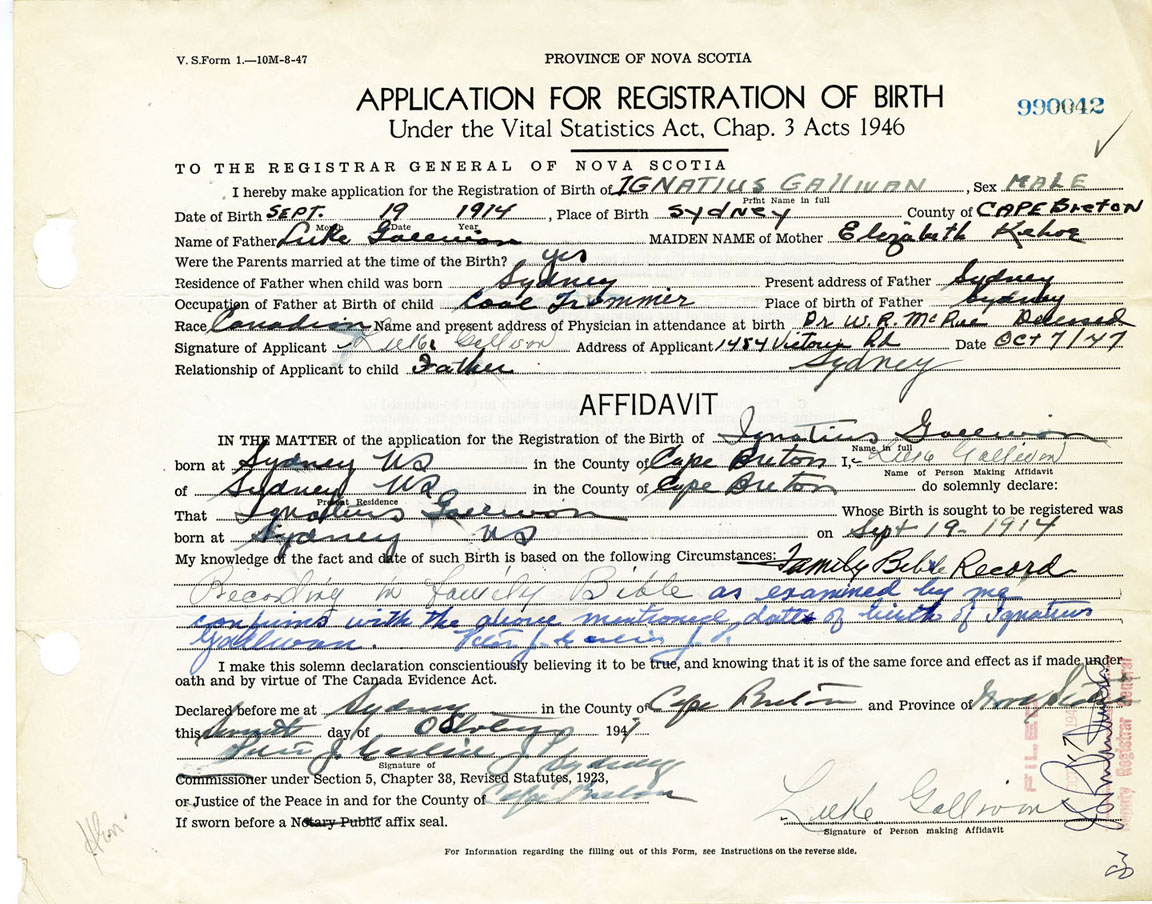 V. S.Form 1.—10M-8-47
PROVINCE OF NOVA SCOTIA
APPLICATION FOR REGISTRATION OF BIRTH
990042
Under the Vital Statistics Act, Chap. 3 Acts 1946
TO THE REGISTRAR GENERAL OF NOVA SCOTIA
I hereby make application for the Registration of Birth of IGNATIUS GALLIVAN, Sex MALE
Print Name in full
Date of Birth SEPT. 19 1914, Place of Birth Sydney County of CAPE BRETON
Month Date Year
Name of Father Luke Gallivan MAIDEN NAME of Mother Elizabeth Kehoe
Were the Parents married at the time of the Birth? yes
Residence of Father when child was born Sydney Present address of Father Sydney
Occupation of Father at Birth of child Coal Trimmer Place of birth of Father Sydney
Race Canadian Name and present address of Physician in attendance at birth Dr W. R. McRae Deceased
Signature of Applicant Luke Gallivan Address of Applicant 1484 Victoria Rd Date OCT 7/47
Relationship of Applicant to child Father Sydney
AFFIDAVIT
IN THE MATTER of the application for the Registration of the Birth of Ignatius Gallivan
Name in full
born at Sydney NS in the County of Cape Breton I, Luke Gallivan
Name of Person Making Affidavit
of Sydney NS in the County of Cape Breton do solemnly declare:
Present Residence
That Ignatius Gallivan Whose Birth is sought to be registered was
born at Sydney NS on Sept 19-1914
My knowledge of the fact and date of such Birth is based on the following Circumstances: Family Bible Record
Recording in family Bible as examined by me
confirms with the above mentioned date of birth of Ignatius
Gallivan.
I make this solemn declaration conscientiously believing it to be true, and knowing that it is of the same force and effect as if made under
oath and by virtue of The Canada Evidence Act.
Declared before me at Sydney in the County of Cape Breton and Province of Nova Scotia
this day of October 1947
Sydney
Signature of
Commissioner under Section 5, Chapter 38, Revised Statutes, 1923,
or Justice of the Peace in and for the County of Cape Breton
If sworn before a Notary Public affix seal.
Luke Gallivan
Signature of Person making Affidavit
FILED
Deputy Registrar General
For Information regarding the filling out of this Form, see Instructions on the reverse side.